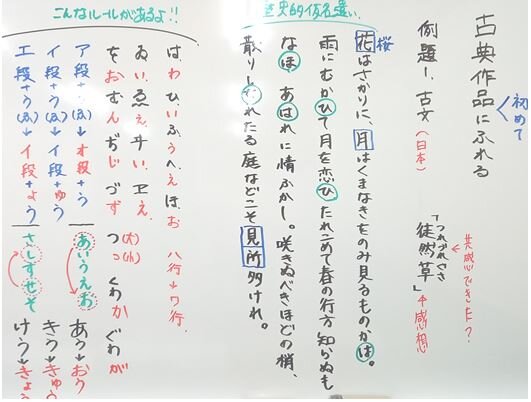 古典作品にふれる
初めて
例題1. 古文(日本)
「徒然草」
つれづれぐさ
感想
共感できた?
花はさかりに、月はくまなきをのみ見るものかは。
桜
雨にむかひて月を恋ひ、たれこめて春の行方知らぬも
なほ、あはれに情ふかし。咲きぬべきほどの梢、
散りしをれたる庭などこそ見所多けれ。
歴史的仮名遣い
こんなルールがあるよ!!
は、わ ひ、い ふ、う へ、え ほ、お ハ行→ワ行.
ゐ、い. ゑ、え. ヰ、イ. ヱ、エ.
を お む ん ぢ じ づ ず つ(大) っ(小) くわ か ぐわ が
ア段+う(ふ)→オ段+う あいうえお あう→おう
イ段+う(ふ)→イ段+ゅう きう→きゅう
エ段+う(ふ)→イ段+ょう さしすせそ けう→きょう